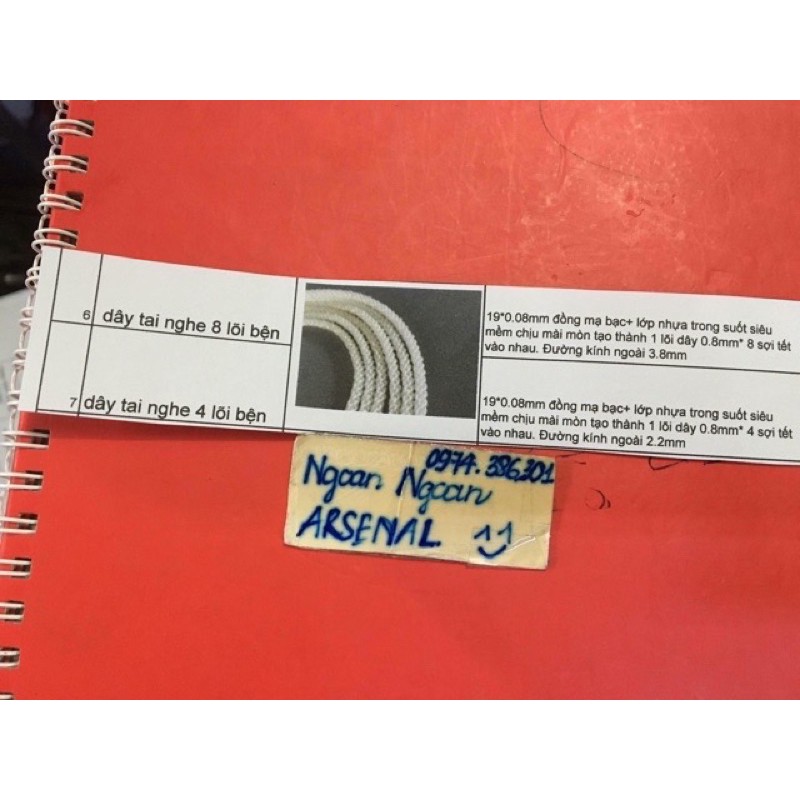 6 dây tai nghe 8 lõi bện
19*0.08mm đồng mạ bạc+ lớp nhựa trong suốt siêu
mềm chịu mài mòn tạo thành 1 lõi dây 0.8mm* 8 sợi tết
vào nhau. Đường kính ngoài 3.8mm
7 dây tai nghe 4 lõi bện
19*0.08mm đồng mạ bạc+ lớp nhựa trong suốt siêu
mềm chịu mài mòn tạo thành 1 lõi dây 0.8mm* 4 sợi tết
vào nhau. Đường kính ngoài 2.2mm
0974.386301
Ngoan Ngoan
ARSENAL